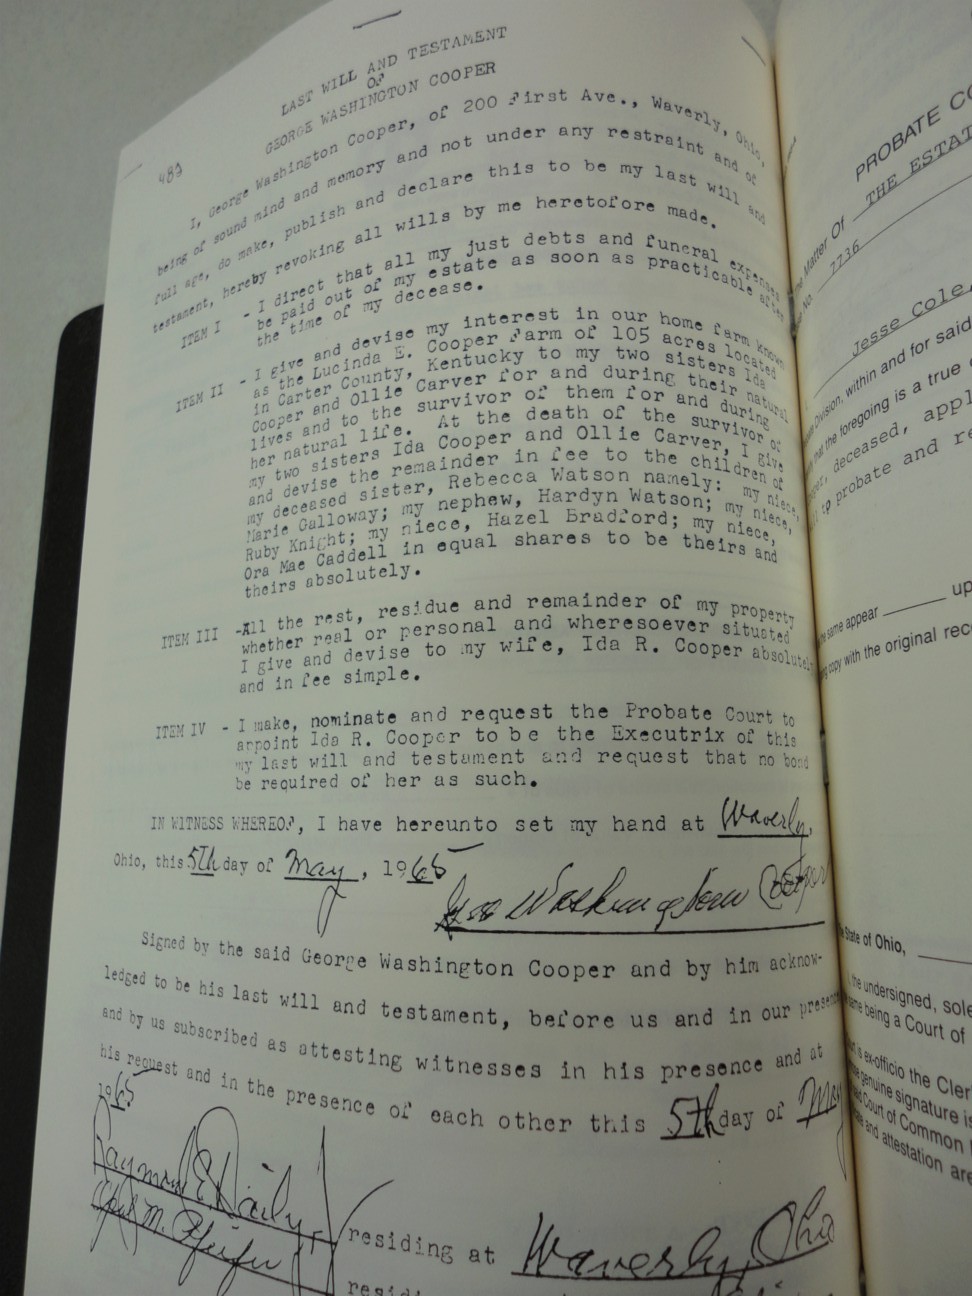 LAST WILL AND TESTAMENT
OF
GEORGE WASHINGTON COOPER
489
I, George Washington Cooper, of 200 First Ave., Waverly, Ohio,
being of sound mind and memory and not under any restraint and of
full age, do make, publish and declare this to be my last will and
testament, hereby revoking all wills by me heretofore made.
ITEM I - I direct that all my just debts and funeral expenses
be paid out of my estate as soon as practicable after
the time of my decease.
ITEM II - I give and devise my interest in our home farm known
as the Lucinda E. Cooper Farm of 105 acres located
in Carter County, Kentucky to my two sisters Ida
Cooper and Ollie Carver for and during their natural
lives and to the survivor of them for and during
her natural life. At the death of the survivor of
my two sisters Ida Cooper and Ollie Carver, I give
and devise the remainder in fee to the children of
my deceased sister, Rebecca Watson namely: my niece,
Marie Galloway; my nephew, Hardyn Watson; my niece,
Ruby Knight; my niece, Hazel Bradford; my niece,
Ora Mae Caddell in equal shares to be theirs and
theirs absolutely.
ITEM III -All the rest, residue and remainder of my property
whether real or personal and wheresoever situated
I give and devise to my wife, Ida R. Cooper absolutely
and in fee simple.
ITEM IV - I make, nominate and request the Probate Court to
appoint Ida R. Cooper to be the Executrix of this
my last will and testament and request that no bond
be required of her as such.
IN WITNESS WHEREOF, I have hereunto set my hand at Waverly,
Ohio, this 5th day of May, 1965
Geo Washington Cooper
Signed by the said George Washington Cooper and by him acknow-
ledged to be his last will and testament, before us and in our presence
and by us subscribed as attesting witnesses in his presence and at
his request and in the presence of each other this 5th day of May
1965
Raymond E. Daily residing at Waverly, Ohio
M. Pfeifer
PROBATE CO
Matter Of THE ESTAT
No. 7736
Jesse Cole,
Division, within and for said
that the foregoing is a true
deceased, appl
to probate and re
the same appear up
copy with the original reco
State of Ohio,
the undersigned, sole
being a Court of
is ex-officio the Cler
genuine signature is
Court of Common
and attestation are